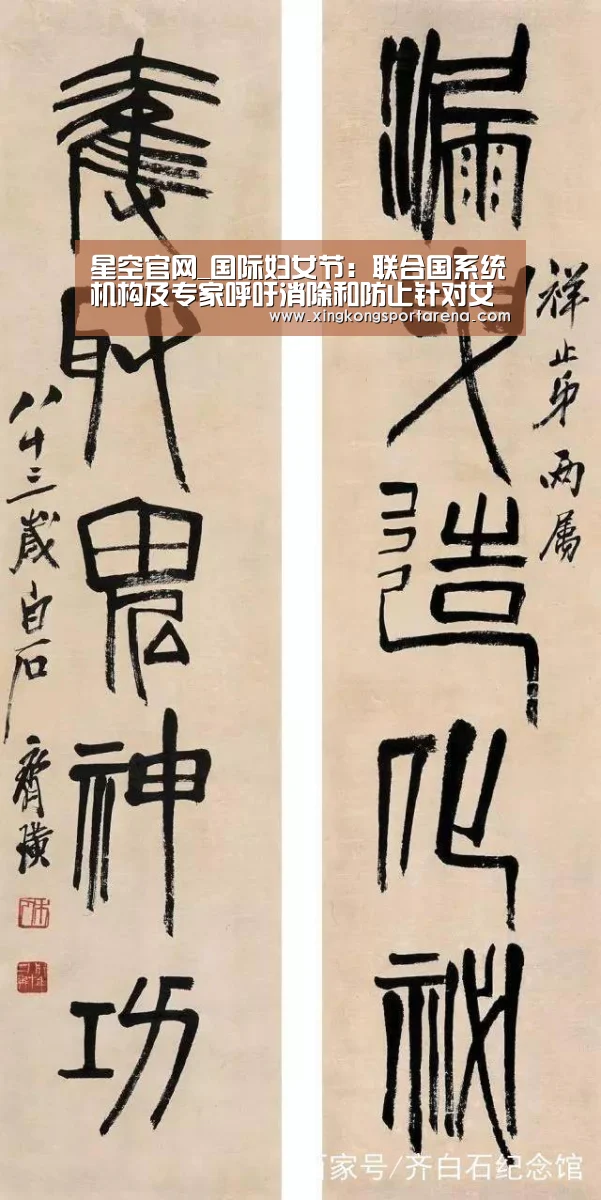 祥止弟两屬
漏造化祕
奪取鬼神功
八十三歲白石齊璜
星空官网_国际妇女节：联合国系统
机构及专家呼吁消除和防止针对女
www.xingkongsportarena.com
百家号/齐白石纪念馆